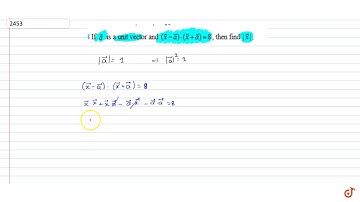 2453
If a⃗ is a unit vector and (x⃗ − a⃗)·(x⃗ + a⃗) = 8, then find |x⃗|.
|a⃗| = 1 ⇒ |a⃗|² = 1
(x⃗ − a⃗) · (x⃗ + a⃗) = 8
x⃗·x⃗ + x⃗·a⃗ − a⃗·x⃗ − a⃗·a⃗ = 8
doubtnut